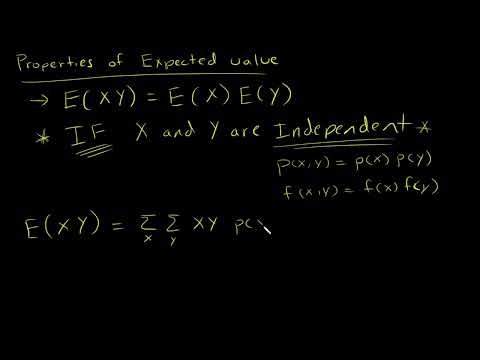 Properties of Expected value
→ E(XY) = E(X) E(Y)
* IF X and Y are Independent *
p(x,y) = p(x) p(y)
f(x,y) = f(x) f(y)
E(XY) = Σ_x Σ_y XY p(x